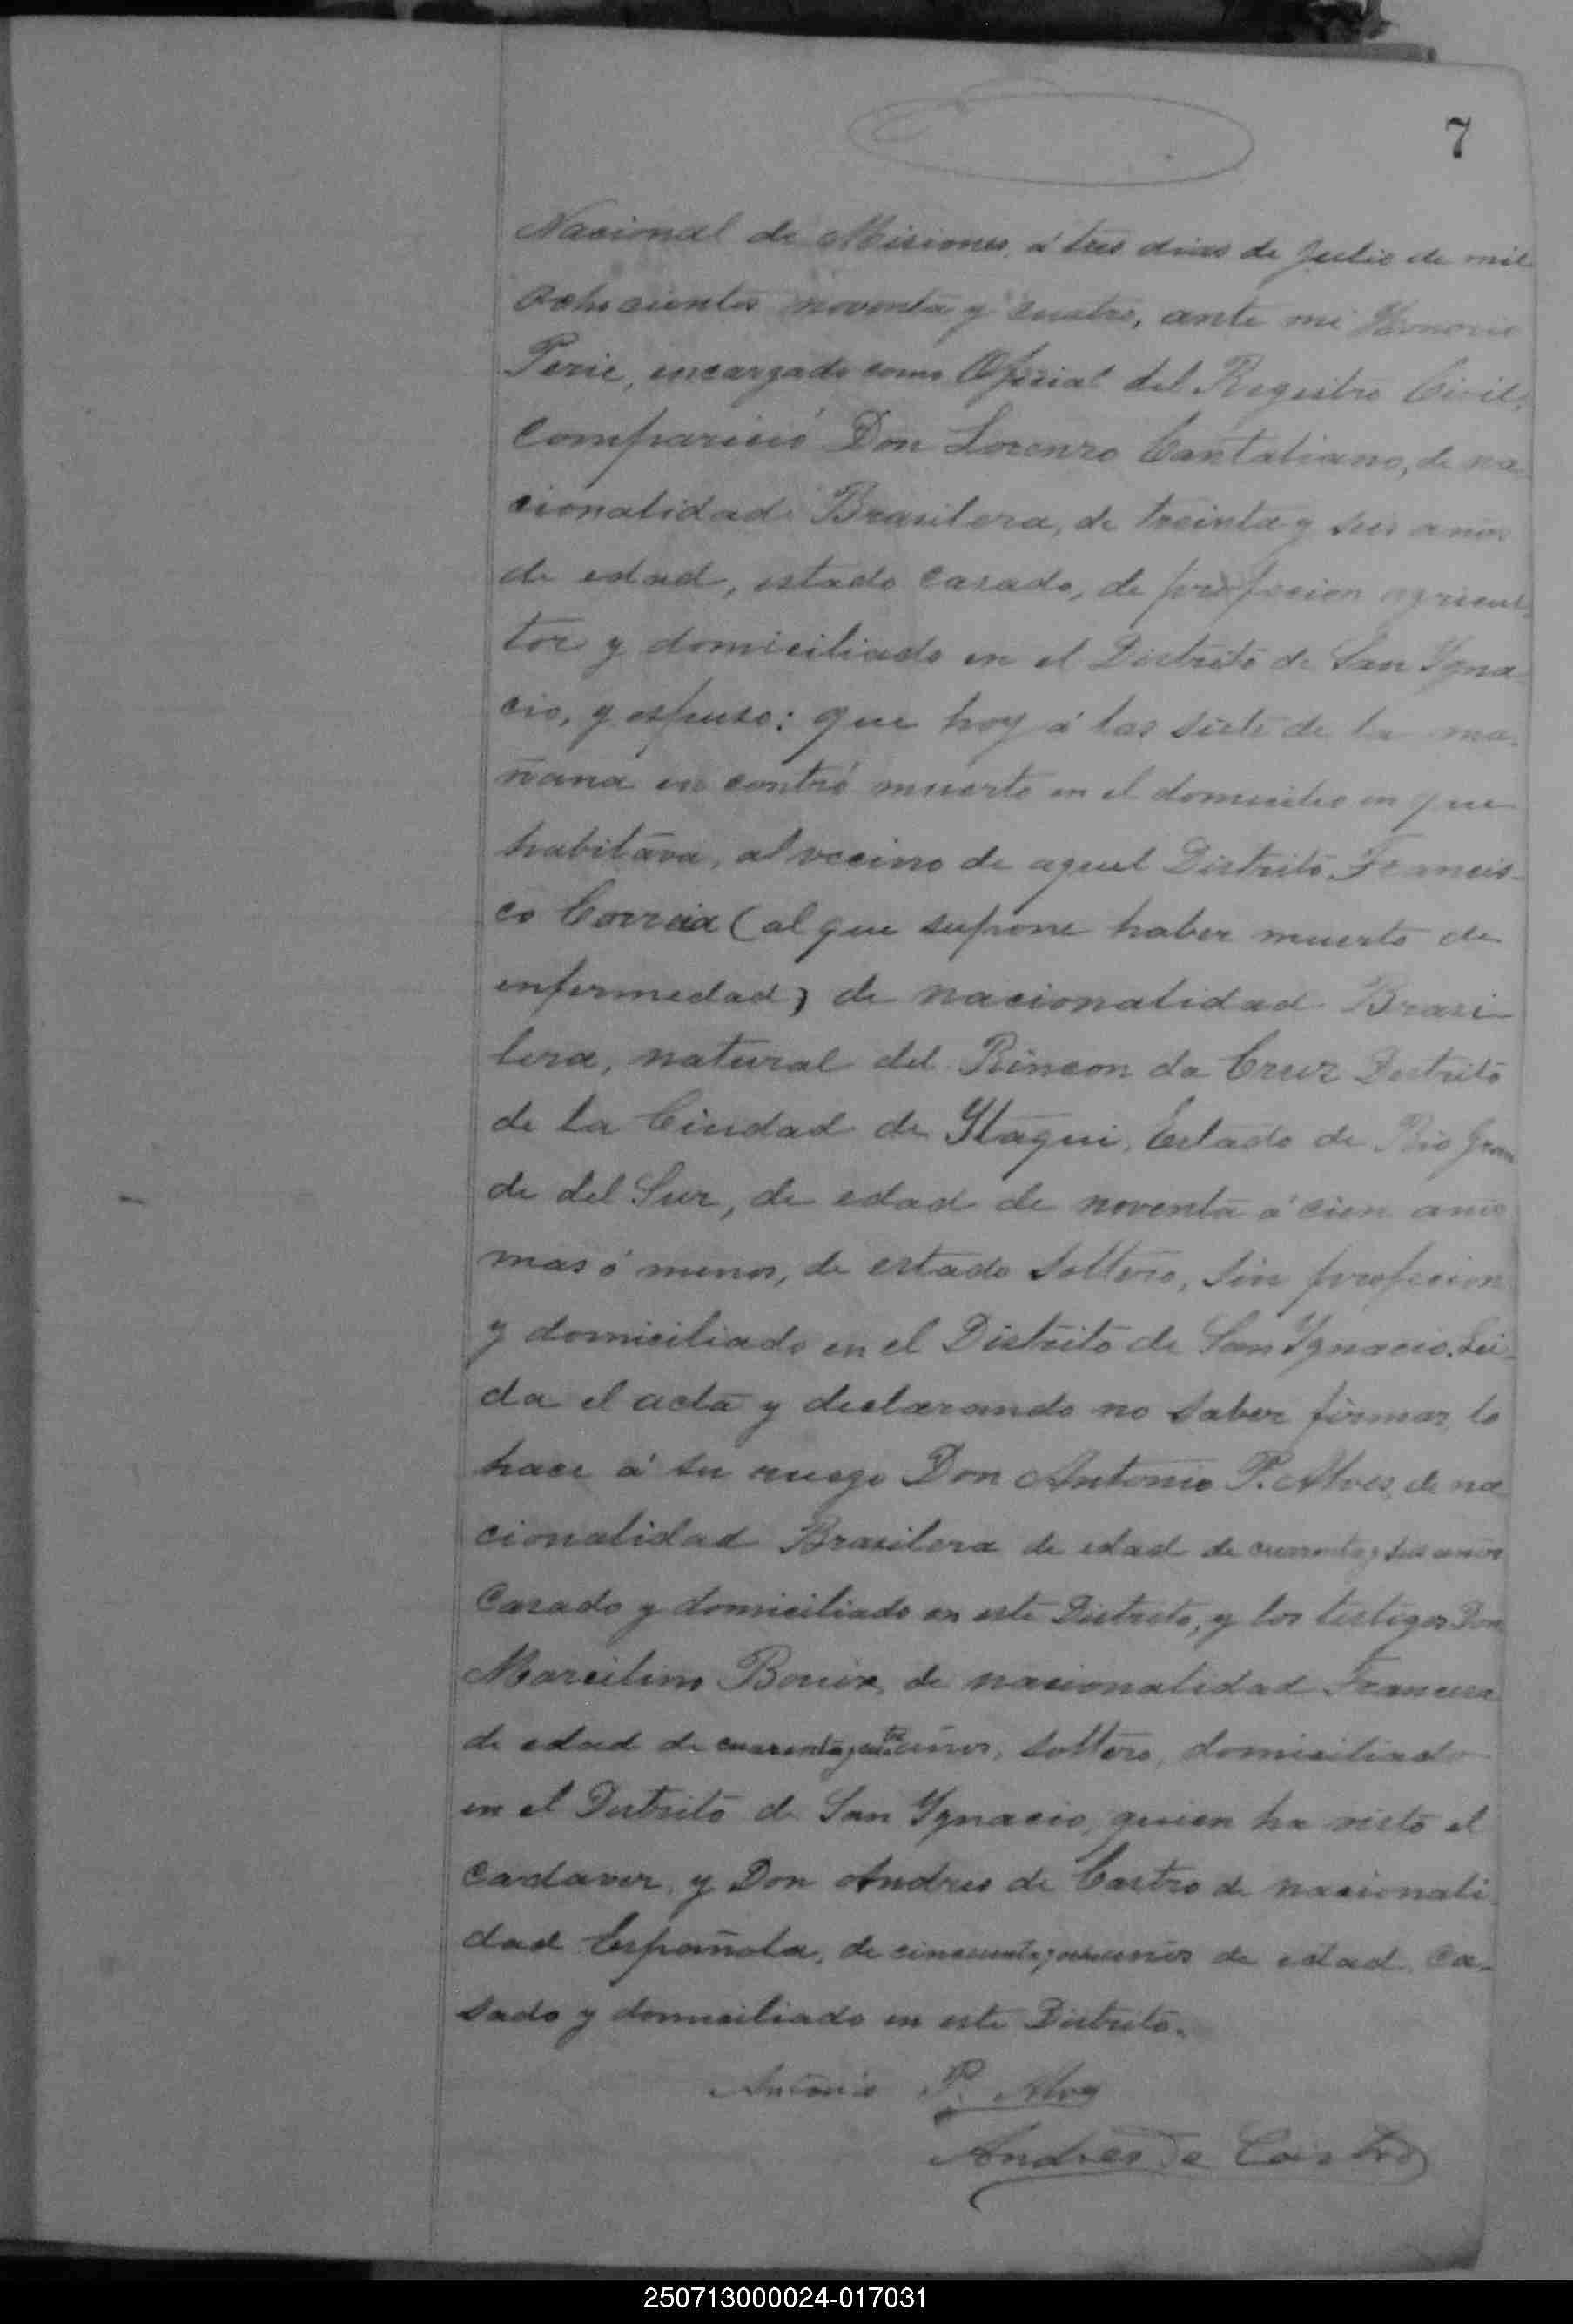 7
Nacional de Misiones, á tres dias de Julio de mil
ochocientos noventa y cuatro, ante mi Honorio
Perie, encargado como Oficial del Registro Civil,
comparició Don Lorenzo Cantaliano, de na
cionalidad Brasilera, de treinta y seis años
de edad, estado casado, de profecion agricul
tor y domiciliado en el Distrito de San Ygna
cio, y espuso: que hoy á las siete de la ma-
ñana en contró muerto en el domicilio en que
habitava, al vecino de aquel Distrito Francis-
co Correia (al que supone haber muerto de
enfermedad) de nacionalidad Brasi-
lera, natural del Rincon da Cruz Distrito
de la Ciudad de Ytaqui, Estado de Rio Gran
de del Sur, de edad de noventa á cien años
mas ó menos, de estado soltero, sin profecion
y domiciliado en el Distrito de San Ygnacio. Lei-
da el acta y declarando no saber firmar, lo
hace á su ruego Don Antonio P. Alves, de na
cionalidad Brasilera de edad de cuarenta y seis años
casado y domiciliado en este Distrito, y los testigos Don
Marcilino Bouix, de nacionalidad Francesa
de edad de cuarenta y años, soltero, domiciliado
en el Distrito de San Ygnacio, quien ha visto el
cadaver, y Don Andres de Castro de nacionali
dad Española, de cincuenta y años de edad, ca-
sado y domiciliado en este Distrito.
Antonio P. Alves
Andres de Castro
250713000024-017031